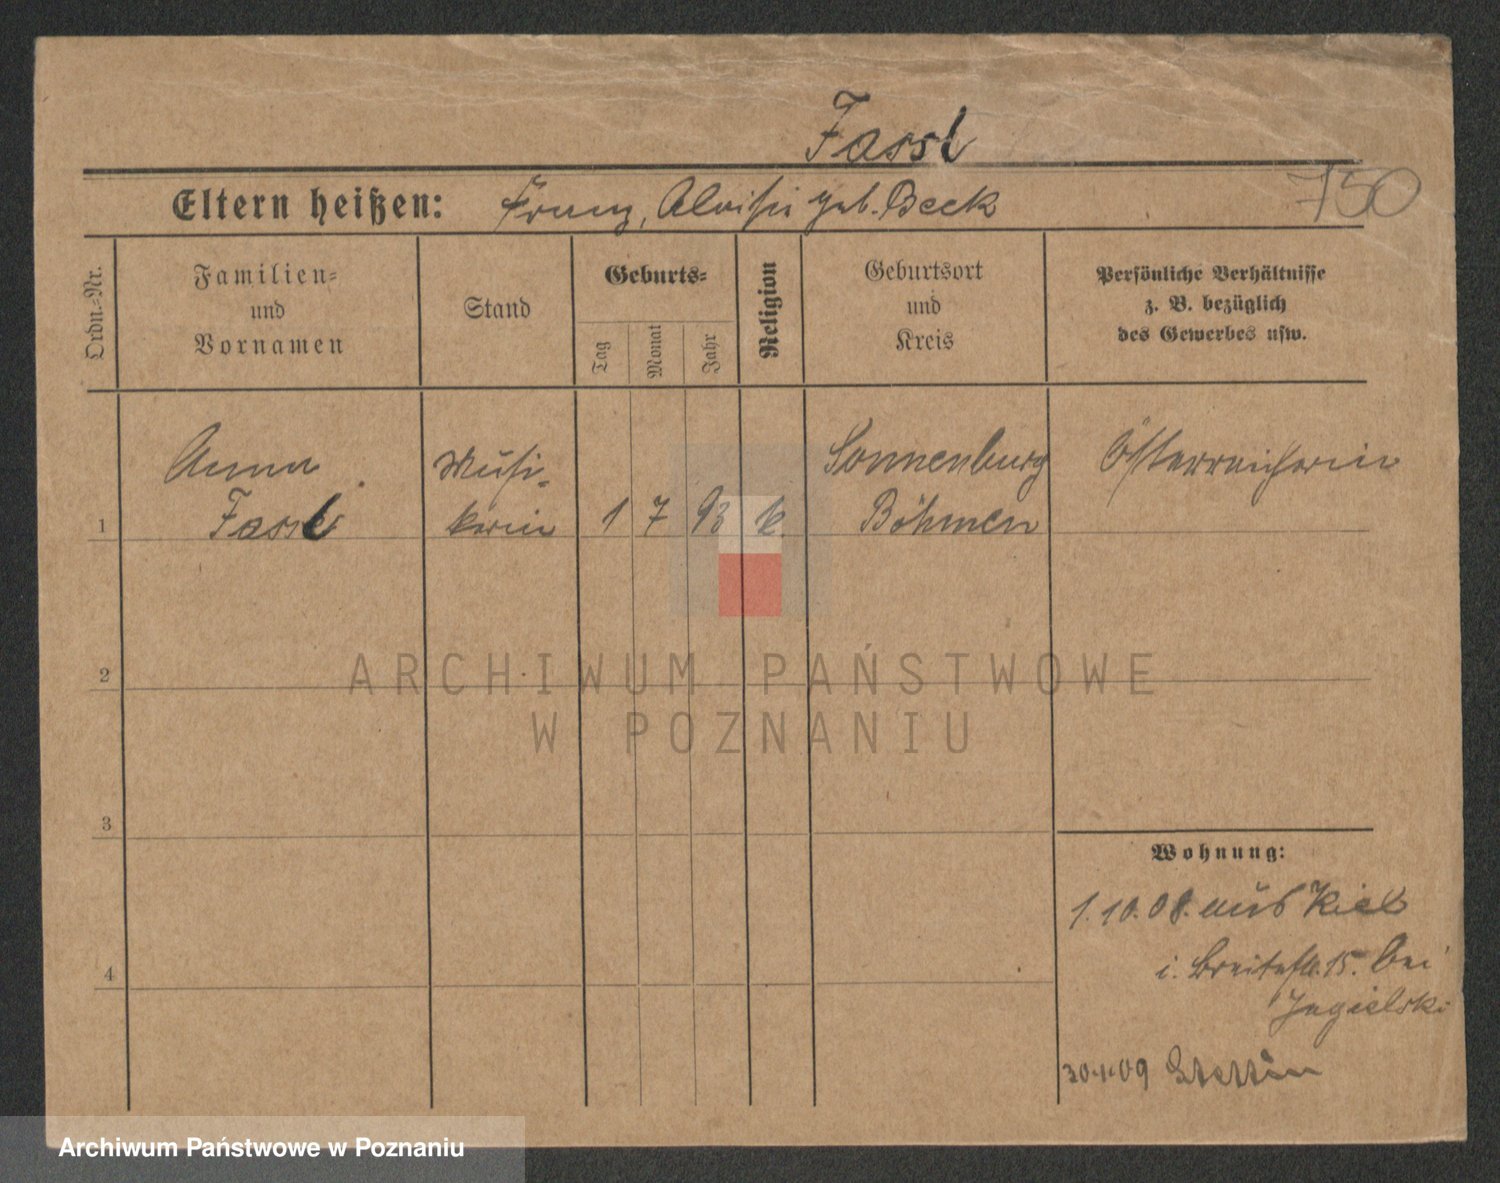 Fassl
Eltern heißen: Franz, Aloisia geb. Beck
750
Ordn.-Nr.
Familien-
und
Vornamen
Stand
Geburts-
Tag
Monat
Jahr
Religion
Geburtsort
und
Kreis
Persönliche Verhältnisse
z. B. bezüglich
des Gewerbes usw.
1
Anna
Fassl
Musi-
kerin
1 7 93 k
Sonnenburg
Böhmen
Österreicherin
2
3
4
Wohnung:
1.10.08. aus Kiel
i. Breitestr. 15. bei
Jagielski
30.1.09 Stettin
ARCHIWUM PAŃSTWOWE
W POZNANIU
Archiwum Państwowe w Poznaniu